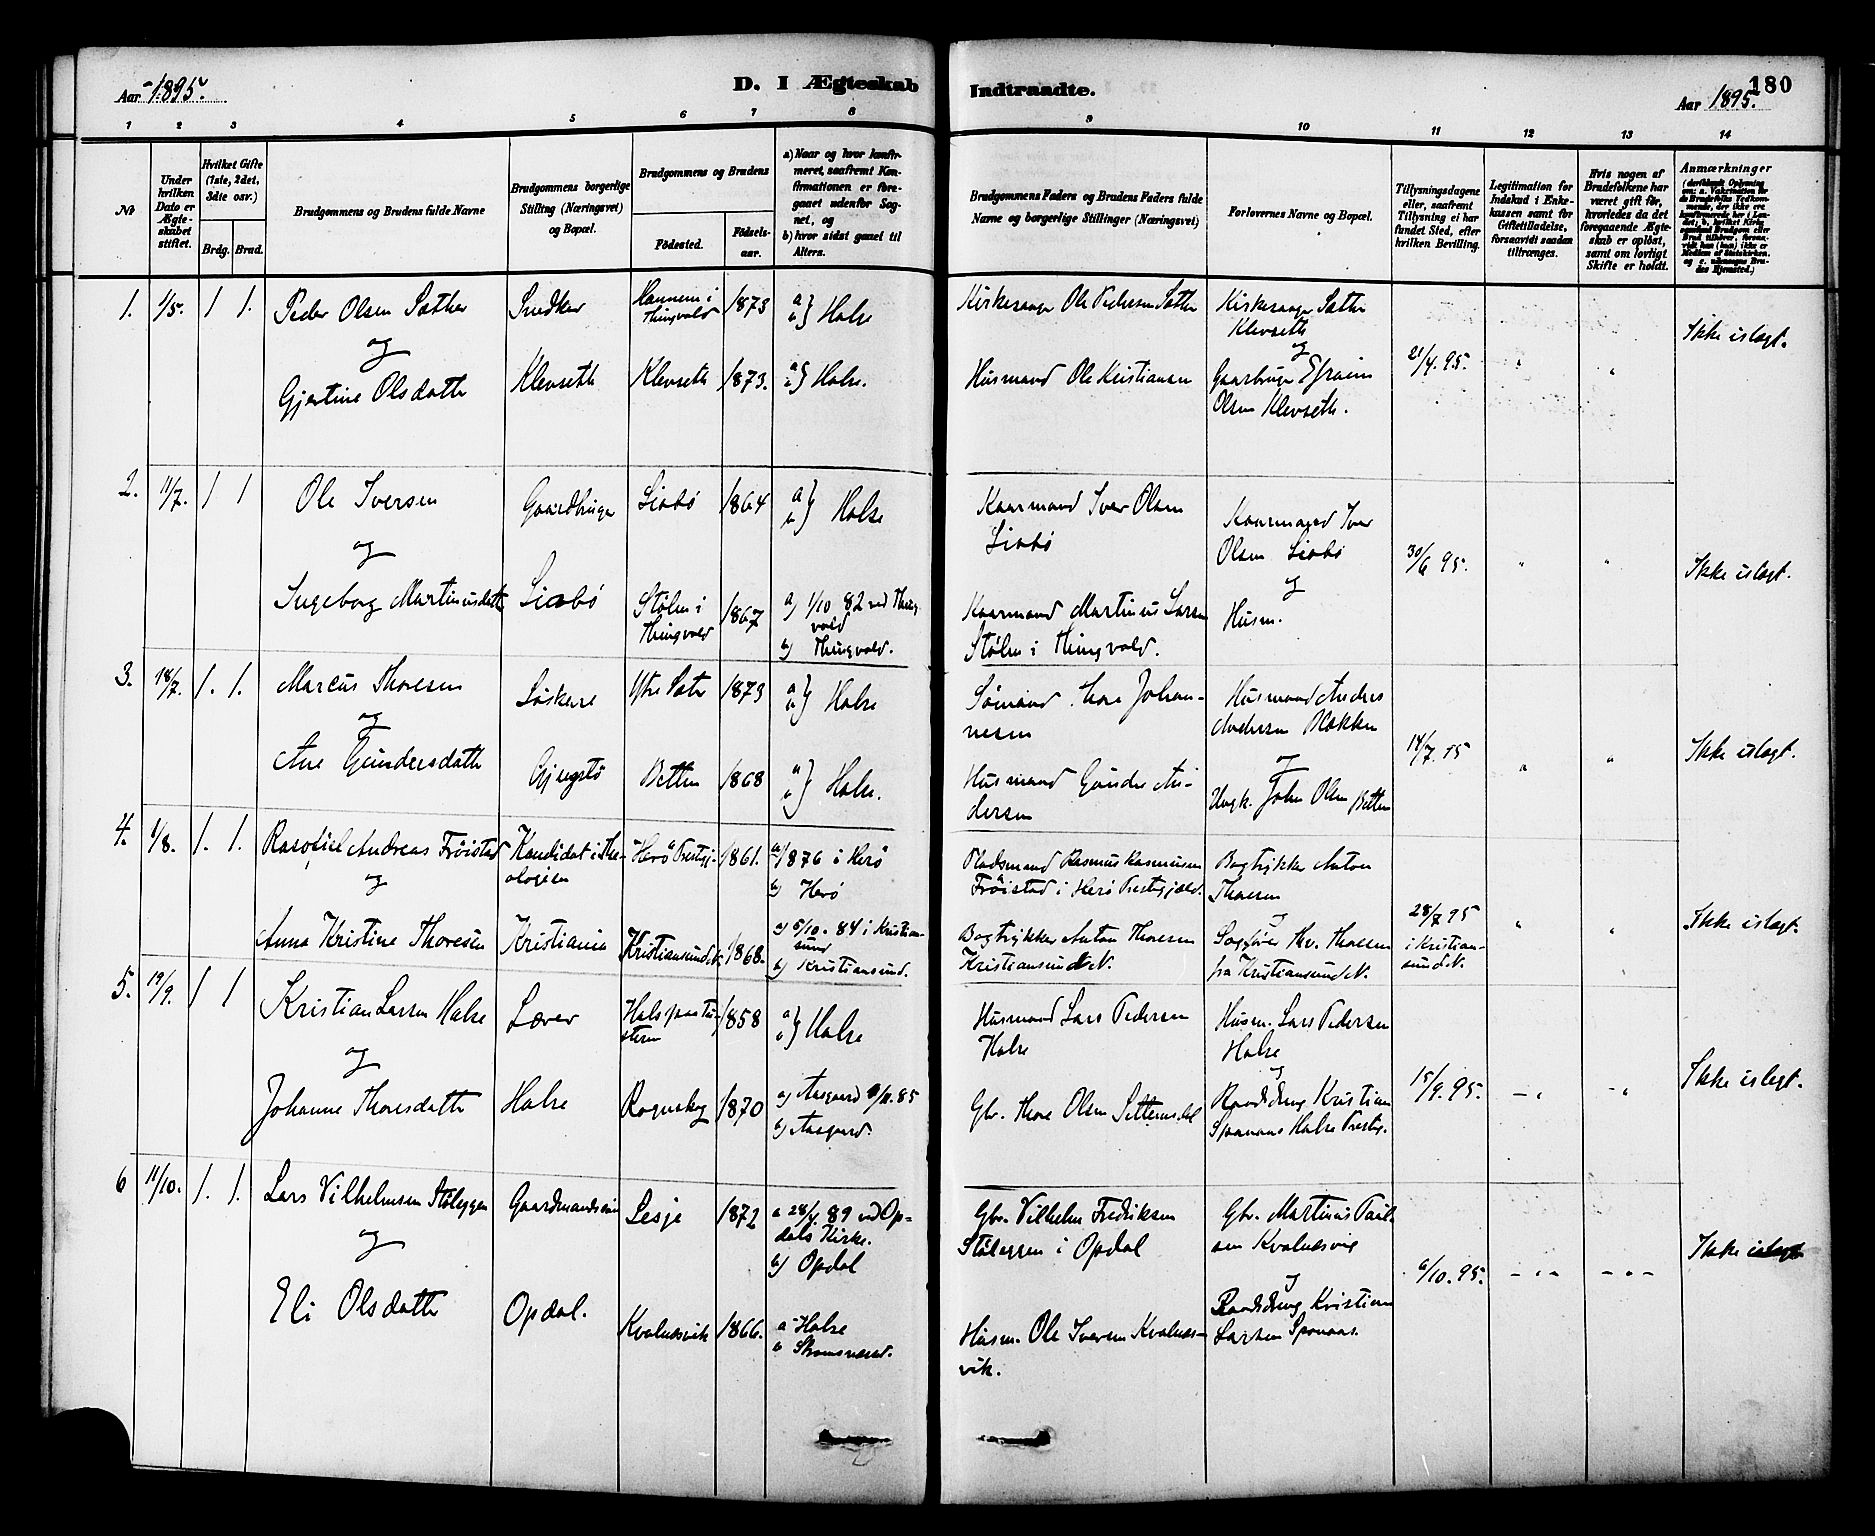 Aar 1895.
D. I Ægteskab
Indtraadte.
180
Aar 1895.
1 2 3 4 5 6 7 8 9 10 11 12 13 14
№
Under hvilken Dato er Ægteskabet stiftet.
Hvilket Gifte (1ste, 2det, 3die osv.)
Brdg. Brud.
Brudgommens og Brudens fulde Navne
Brudgommens borgerlige Stilling (Næringsvei) og Bopæl.
Brudgommens og Brudens
Fødested.
Fødselsaar.
a) Naar og hvor konfirmeret, saafremt Konfirmationen er foregaaet udenfor Sognet, og
b) hvor sidst gaaet til Alters.
Brudgommens Faders og Brudens Faders fulde Navne og borgerlige Stillinger (Næringsvei)
Forlovernes Navne og Bopæl.
Tillysningsdagene eller, saafremt Tillysning ei har fundet Sted, efter hvilken Bevilling.
Legitimation for Indskud i Enkekassen samt for Giftetilladelse, forsaavidt saadan tiltrænges.
Hvis nogen af Brudefolkene har været gift før, hvorledes da det foregaaende Ægteskab er opløst, samt om lovligt Skifte er holdt.
Anmærkninger
1. 1/5. 1 1.
Peder Olsen Sæther
og
Gjertine Olsdatter
Snedker
Klevseth
Thingvold 1873
Klevseth 1873.
a b} Halse
a b} Halse.
Kirkesanger Ole Pedersen Sæther
Husmand Ole Kristiansen
Kirkesanger Sæther
Klevseth
og
Gaarbruger Efraim
Olsen Klevseth.
21/4. 95.
Ikke islagt.
2. 11/7. 1 1
Ole Iversen
og
Ingeborg Martinusdatter
Gaardbruger
Liabø
Liabø 1864
Stølen i
Thingvold 1867
a b} Halse
a) 1/10 82 ved Thingvold
b) Thingvold.
Kaarmand Iver Olsen
Liabø
Kaarmand Martinus Larsen
Stølen i Thingvold.
Kaarmand Iver
Olsen Liabø
og
Husm.
30/6 95.
Ikke islagt.
3. 18/7. 1. 1.
Marcus Thoresen
og
Ane Gundersdatter
Betten 1868
1873
a b} Halse
a b} Halse.
Sømand Thore Johannesen
Husmand Gunder Andersen
Husmand Anders
Andersen Blakken
og
Ungk. John Olsen Betten
14/7. 95
Ikke islagt.
4. 1/8. 1. 1.
Andreas Frøistad
og
Anna Kristine Thoresen
Kandidat i Theologien
Kristiania
Herø Prestgj. 1861.
Kristiansund N. 1868.
a) 1876 i Herø
b) Herø
a) 5/10. 84 i Kristiansund
b) Kristiansund.
Pladsmand Rasmus Rasmussen
Frøistad i Herø Prestegjæld.
Bogtrykker Anton Thoresen
Kristiansund N.
Bogtrykker Anton
Thoresen
og
Sagfører Thv. Thoresen
fra Kristiansund N.
28/7 95
i Kristiansund N.
Ikke islagt.
5. 19/9. 1 1
Kristian Larsen Halse
og
Johanne Thoresdatter
Lærer
Halse
1858
Rognskog 1870
a b} Halse
a) Aasgaard 85
b) Aasgaard.
Husmand Lars Pedersen
Halse
Gbr. Thore Olsen Settemsdal
Husm. Lars Pedersen
Halse
og
Kristian
Halse Prestg.
15/9. 95.
Ikke islagt.
6 11/10. 1. 1.
Lars Vilhelmsen Støleggen
og
Eli Olsdatter
Gaardmandssøn
Opdal.
Lesje 1872
Kvalnesvik 1866.
a 28/4. 89 ved Opdals Kirke.
b) Opdal
a Halse
b Strømsneset.
Gbr. Vilhelm Fredriksen
Støleggen i Opdal
Husm. Ole Iversen Kvalnesvik.
Gbr. Martinus Paulsen Kvalnesvig
og
Kristian
Larsen
6/10. 95.
Ikke islagt